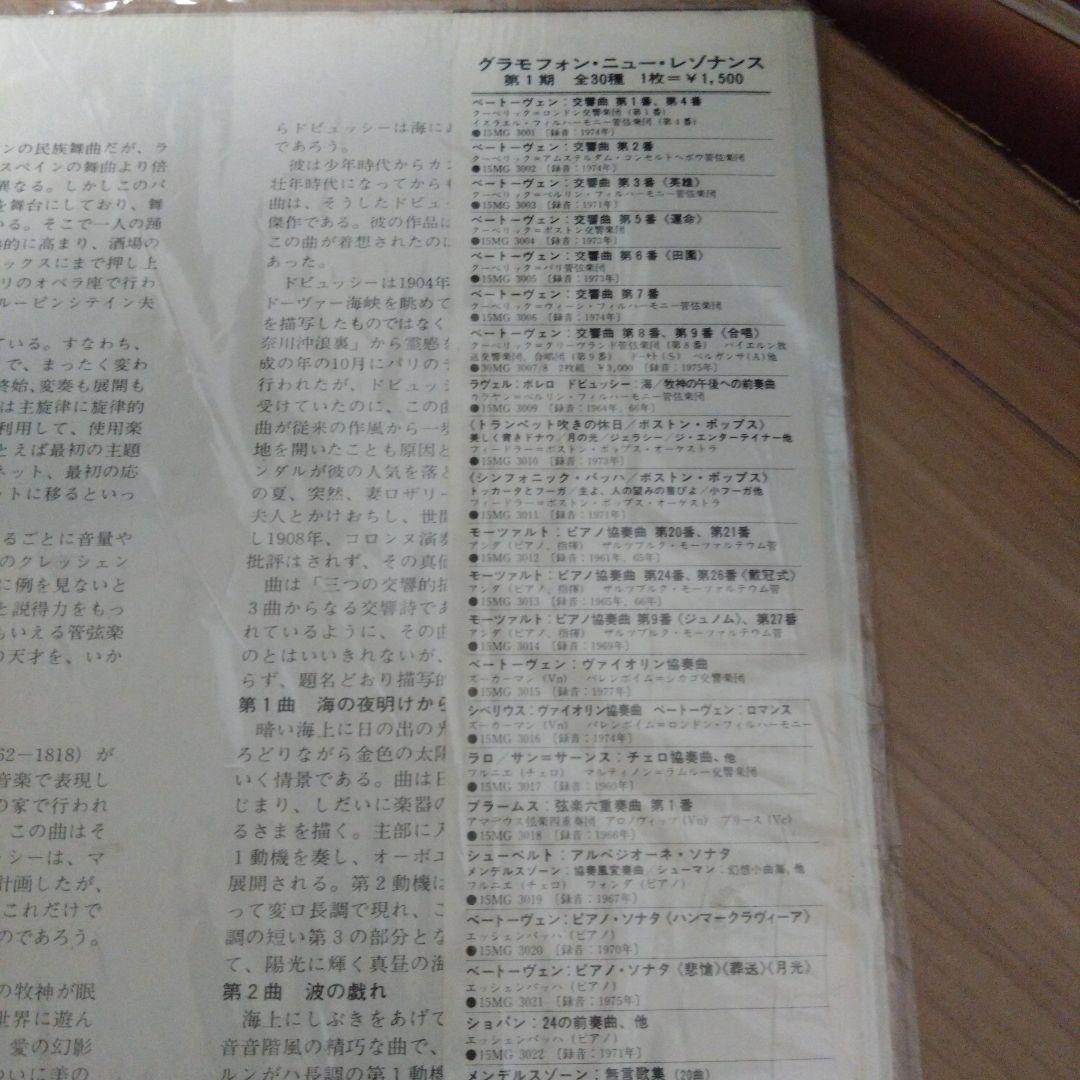 ンの民族舞曲だが、ラ
スペインの舞曲より倍
異なる。しかしこのバ
を舞台にしており、舞
いる。そこで一人の踊
的に高まり、酒場の
ックスにまで押し上
リのオペラ座で行わ
ルービンシテイン夫
ている。すなわち、
で、まったく変わ
終始、変奏も展開も
は主旋律に旋律的
利用して、使用楽
とえば最初の主題
ネット、最初の応
ットに移るといっ
るごとに音量や
のクレッシェン
に例を見ないと
と説得力をもっ
もいえる管弦楽
の天才を、いか
62−1818）が
音楽で表現し
の家で行われ
この曲はそ
ッシーは、マ
計画したが、
これだけで
のであろう。
の牧神が眠
世界に遊ん
愛の幻影
ついに美の
らドビュッシーは海に
であろう。
彼は少年時代からカン
壮年時代になってからも
曲は、そうしたドビュッ
傑作である。彼の作品に
この曲が着想されたのに
あった。
ドビュッシーは1904年
ドーヴァー海峡を眺めて
を描写したものではなく
奈川沖浪裏」から霊感を
成の年の10月にパリのラ
行われたが、ドビュッシ
受けていたのに、この曲
曲が従来の作風から一歩
地を開いたことも原因と
ンダルが彼の人気を落と
の夏、突然、妻ロザリー
夫人とかけおちし、世間
し1908年、コロンヌ演奏
批評はされず、その真価
曲は「三つの交響的描
3曲からなる交響詩であ
れているように、その曲
のとはいいきれないが、
らず、題名どおり描写的
第1曲　海の夜明けから
暗い海上に日の出の光
ろどりながら金色の太陽
いく情景である。曲は日
じまり、しだいに楽器の
るさまを描く。主部に入
1動機を奏し、オーボエ
展開される。第2動機は
って変ロ長調で現れ、こ
調の短い第3の部分とな
て、陽光に輝く真昼の海
第2曲　波の戯れ
海上にしぶきをあげて
音音階風の精巧な曲で、
ルンがハ長調の第1動機
グラモフォン・ニュー・レゾナンス
第1期　全30種　1枚＝￥1,500
ベートーヴェン：交響曲 第1番、第4番
クーベリック＝ロンドン交響楽団（第1番）
イスラエル・フィルハーモニー管弦楽団（第4番）
●15MG 3001 〔録音：1974年〕
ベートーヴェン：交響曲 第2番
クーベリック＝アムステルダム・コンセルトヘボウ管弦楽団
●15MG 3002 〔録音：1974年〕
ベートーヴェン：交響曲 第3番《英雄》
クーベリック＝ベルリン・フィルハーモニー管弦楽団
●15MG 3003 〔録音：1971年〕
ベートーヴェン：交響曲 第5番《運命》
クーベリック＝ボストン交響楽団
●15MG 3004 〔録音：1973年〕
ベートーヴェン：交響曲 第6番《田園》
クーベリック＝パリ管弦楽団
●15MG 3005 〔録音：1973年〕
ベートーヴェン：交響曲 第7番
クーベリック＝ウィーン・フィルハーモニー管弦楽団
●15MG 3006 〔録音：1974年〕
ベートーヴェン：交響曲 第8番、第9番《合唱》
クーベリック＝クリーヴランド管弦楽団（第8番）　バイエルン放
送交響楽団、合唱団（第9番）　ドーナト（S）　ベルガンサ（A）他
●30MG 3007/8　2枚組　￥3,000 〔録音：1975年〕
ラヴェル：ボレロ　ドビュッシー：海／牧神の午後への前奏曲
カラヤン＝ベルリン・フィルハーモニー管弦楽団
●15MG 3009 〔録音：1964年、66年〕
《トランペット吹きの休日／ボストン・ポップス》
美しく青きドナウ／月の光／ジェラシー／ジ・エンターテイナー他
フィードラー＝ボストン・ポップス・オーケストラ
●15MG 3010 〔録音：1973年〕
《シンフォニック・バッハ／ボストン・ポップス》
トッカータとフーガ／主よ、人の望みの喜びよ／小フーガ他
フィードラー＝ボストン・ポップス・オーケストラ
●15MG 3011 〔録音：1971年〕
モーツァルト：ピアノ協奏曲 第20番、第21番
アンダ（ピアノ、指揮）　ザルツブルク・モーツァルテウム管
●15MG 3012 〔録音：1961年、65年〕
モーツァルト：ピアノ協奏曲 第24番、第26番《戴冠式》
アンダ（ピアノ、指揮）　ザルツブルク・モーツァルテウム管
●15MG 3013 〔録音：1965年、66年〕
モーツァルト：ピアノ協奏曲 第9番《ジュノム》、第27番
アンダ（ピアノ、指揮）　ザルツブルク・モーツァルテウム管
●15MG 3014 〔録音：1969年〕
ベートーヴェン：ヴァイオリン協奏曲
ズーカーマン（Vn）　バレンボイム＝シカゴ交響楽団
●15MG 3015 〔録音：1977年〕
シベリウス：ヴァイオリン協奏曲　ベートーヴェン：ロマンス
ズーカーマン（Vn）　バレンボイム＝ロンドン・フィルハーモニー
●15MG 3016 〔録音：1974年〕
ラロ／サン＝サーンス：チェロ協奏曲、他
フルニエ（チェロ）　マルティノン＝ラムルー交響楽団
●15MG 3017 〔録音：1960年〕
ブラームス：弦楽六重奏曲 第1番
アマデウス弦楽四重奏団　アロノヴィッツ（Vn）　プリース（Vc）
●15MG 3018 〔録音：1966年〕
シューベルト：アルペジオーネ・ソナタ
メンデルスゾーン：協奏風変奏曲／シューマン：幻想小曲集、他
フルニエ（チェロ）　フォンダ（ピアノ）
●15MG 3019 〔録音：1967年〕
ベートーヴェン：ピアノ・ソナタ《ハンマークラヴィーア》
エッシェンバッハ（ピアノ）
●15MG 3020 〔録音：1970年〕
ベートーヴェン：ピアノ・ソナタ《悲愴》《葬送》《月光》
エッシェンバッハ（ピアノ）
●15MG 3021 〔録音：1975年〕
ショパン：24の前奏曲、他
エッシェンバッハ（ピアノ）
●15MG 3022 〔録音：1971年〕
メンデルスゾーン：無言歌集（20曲）